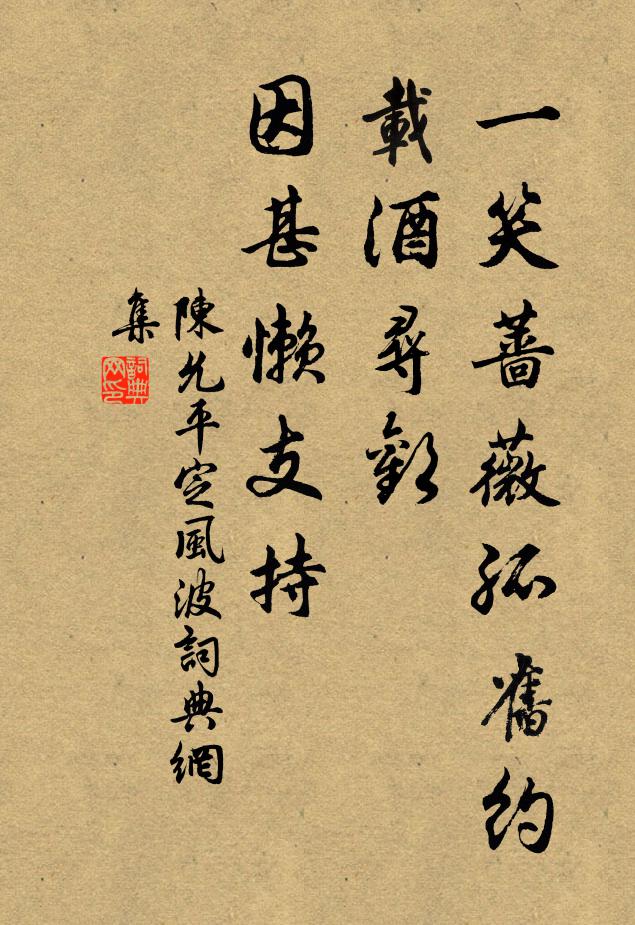 一笑蔷薇孤舊約
載酒尋歡
因甚懶支持
陳允平定風波詞典網
集
詞典
网印